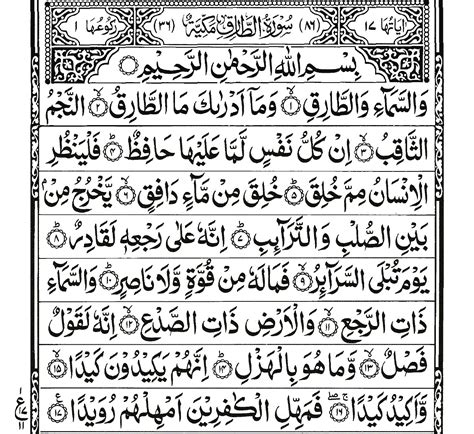 اٰیَاتُهَا ۱۷ (۸۶) سُوْرَةُ الطَّارِقِ مَكِّيَّةٌ (۳۶) رُكُوْعُهَا ۱
بِسْمِ اللّٰهِ الرَّحْمٰنِ الرَّحِيْمِ
وَالسَّمَآءِ وَالطَّارِقِ ۱ وَمَاۤ اَدْرٰىكَ مَا الطَّارِقُ ۲ النَّجْمُ
الثَّاقِبُ ۳ اِنْ كُلُّ نَفْسٍ لَّمَّا عَلَيْهَا حَافِظٌ ۴ فَلْيَنْظُرِ
الْاِنْسَانُ مِمَّ خُلِقَ ۵ خُلِقَ مِنْ مَّآءٍ دَافِقٍ ۶ يَّخْرُجُ مِنْۢ
بَيْنِ الصُّلْبِ وَالتَّرَآئِبِ ۷ اِنَّهٗ عَلٰى رَجْعِهٖ لَقَادِرٌ ۸
يَوْمَ تُبْلَى السَّرَآئِرُ ۹ فَمَا لَهٗ مِنْ قُوَّةٍ وَّلَا نَاصِرٍ ۱۰ وَالسَّمَآءِ
ذَاتِ الرَّجْعِ ۱۱ وَالْاَرْضِ ذَاتِ الصَّدْعِ ۱۲ اِنَّهٗ لَقَوْلٌ
فَصْلٌ ۱۳ وَّمَا هُوَ بِالْهَزْلِ ۱۴ اِنَّهُمْ يَكِيْدُوْنَ كَيْدًا ۱۵
وَّاَكِيْدُ كَيْدًا ۱۶ فَمَهِّلِ الْكٰفِرِيْنَ اَمْهِلْهُمْ رُوَيْدًا ۱۷